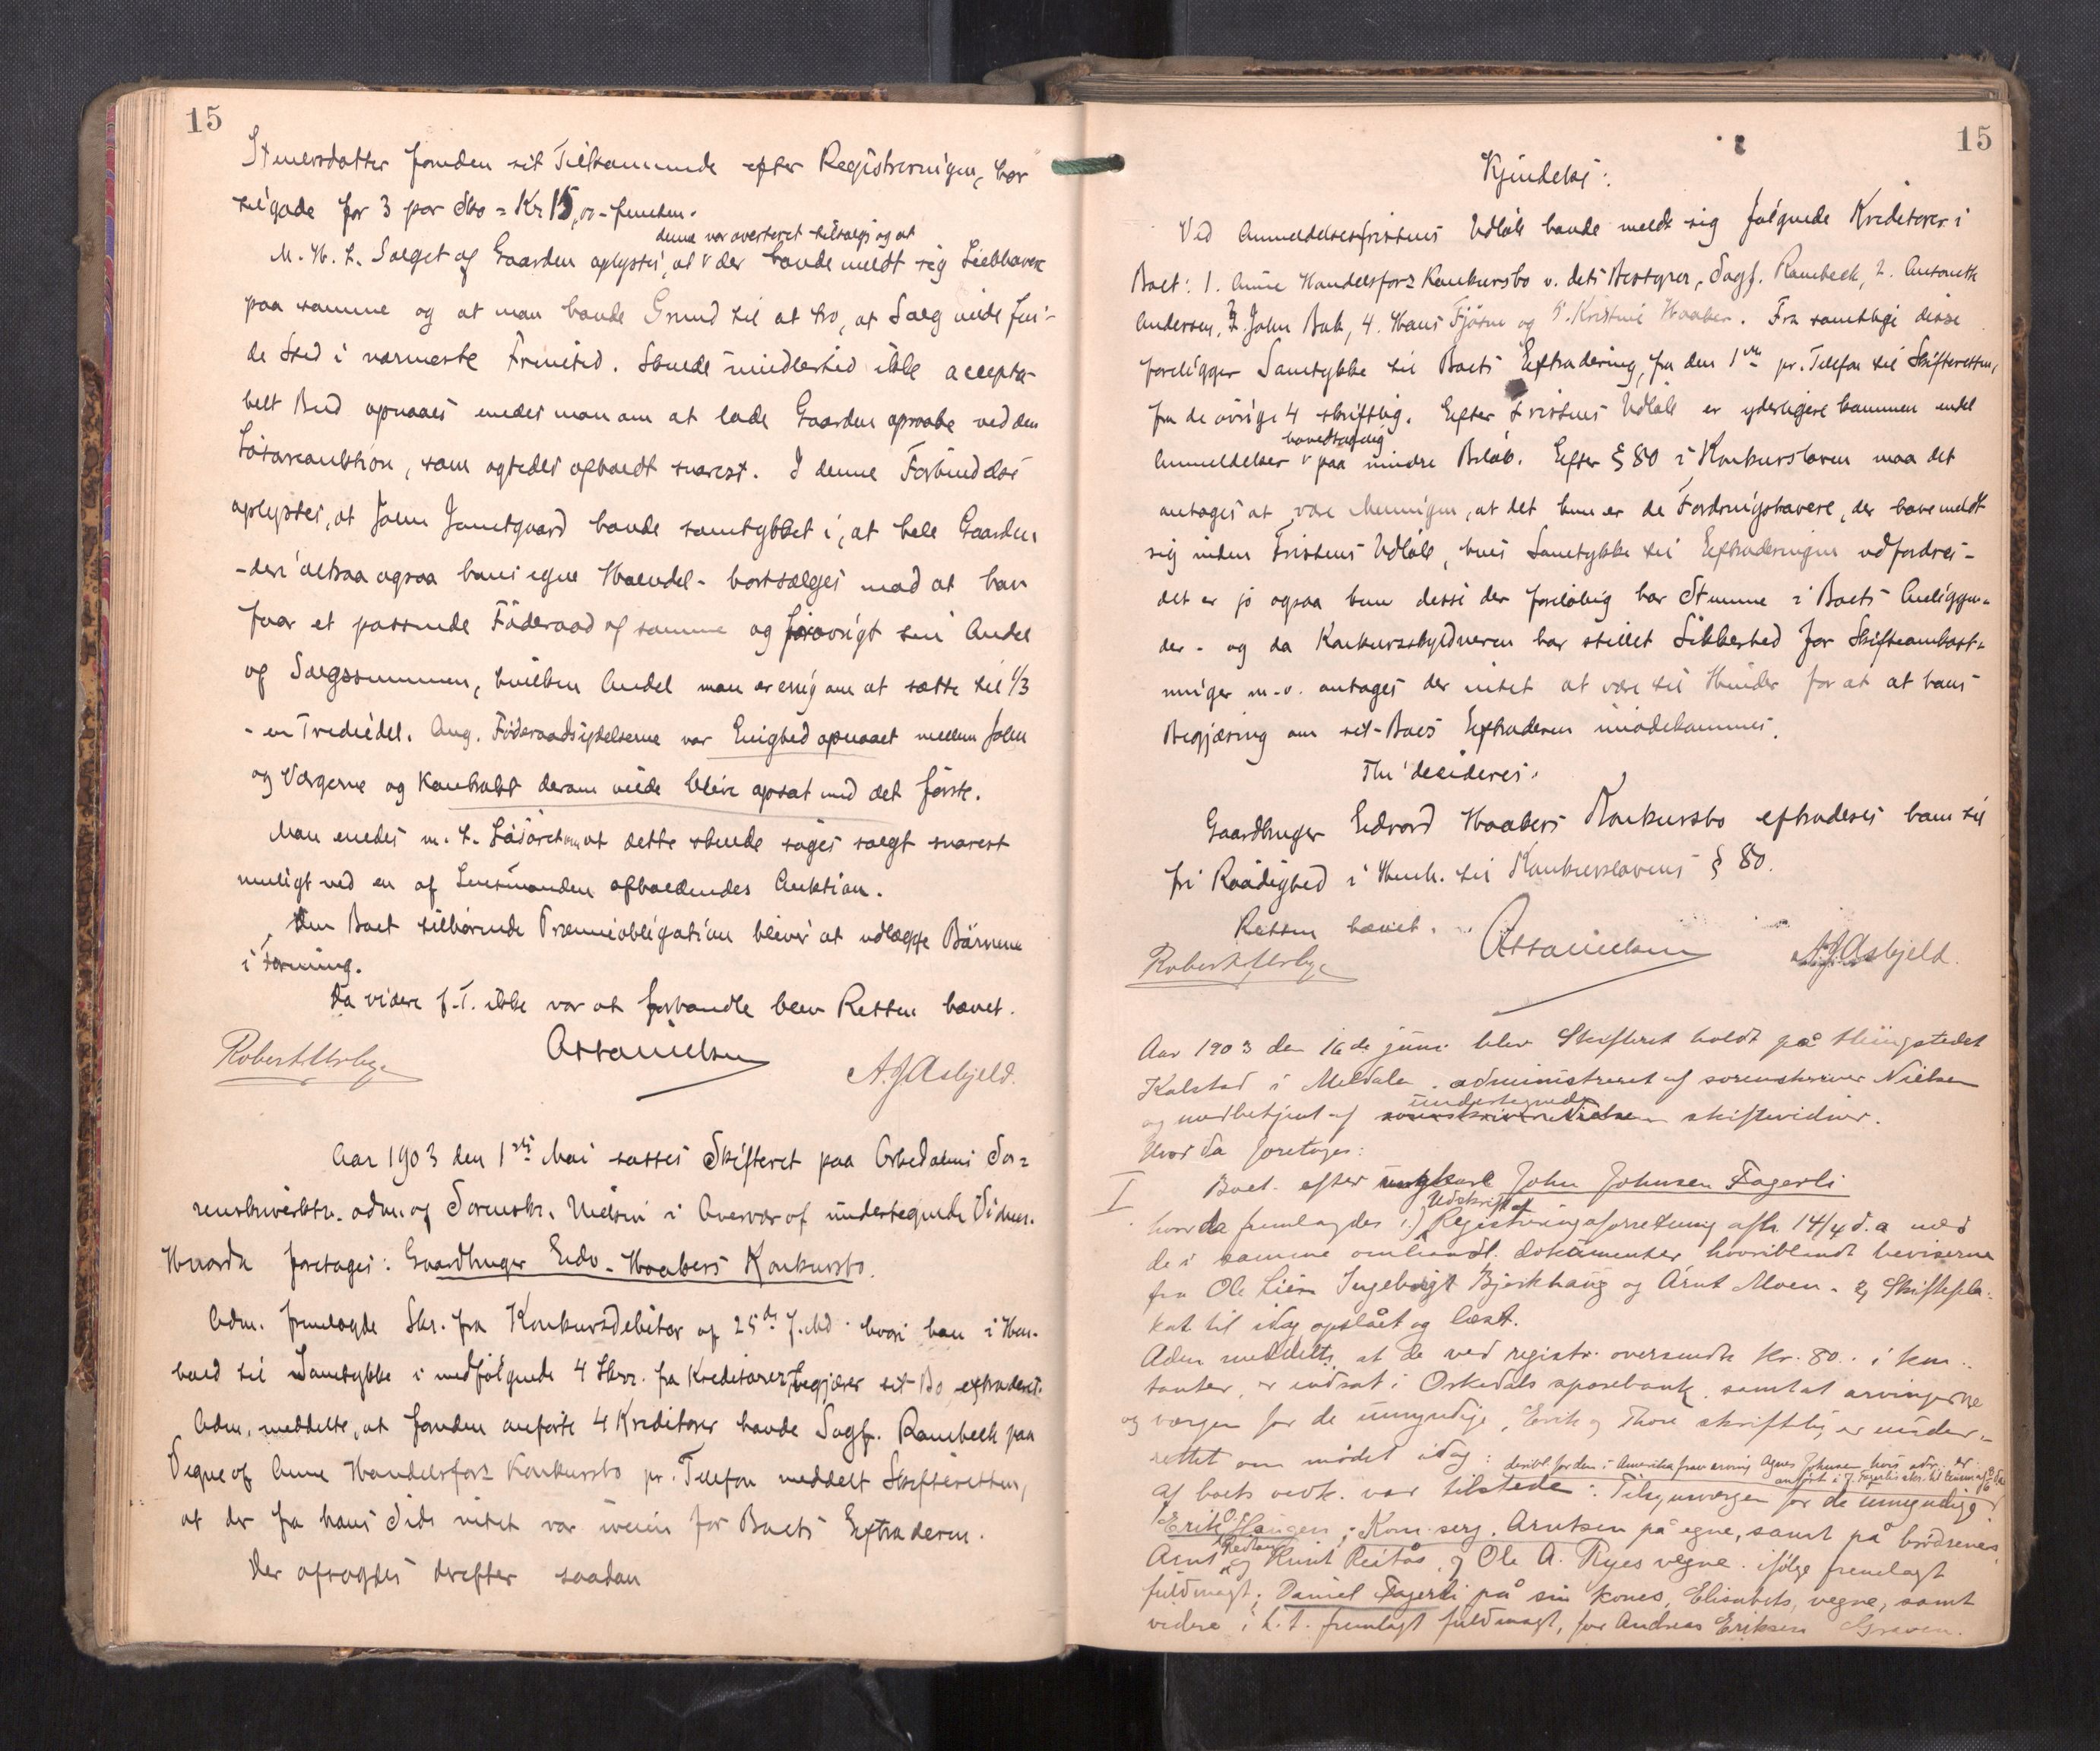 15
Stinersdatter foruden sit Tilkommende efter Registreringen, har
tilgode for 3 par Sko = Kr 15,00 - femten.
denne var averteret tilsalgs og at
M. H. t. Salget af Gaarden oplystes, at v der havde meldt sig Liebhavere
paa samme og at man havde Grund til at tro, at Salg vilde fin-
de Sted i nærmeste Fremtid. Skulde imidlertid ikke accepta-
belt Bud opnaaes enedes man om at lade Gaarden opraabe ved den
Løsøreauktion, som agtedes afholdt snarest. I denne Forbindelse
oplystes, at John Jametgaard havde samtykket i, at hele Gaarden
- deri altsaa ogsaa hans egne Halvdel - bortsælges mod at han
faar et passende Föderaad af samme og forøvrigt sin Andel
af Salgssummen, hvilken Andel man er enig om at sætte til 1/3
- en Trediedel. Ang. Föderaadsydelserne var Enighed opnaaet mellem John
og Værgerne og Kontrakt derom vilde blive opsat med det første.
Man enedes m. H. t. Løsøret om at dette skulde søges solgt snarest
muligt ved en af Lensmanden afholdendes Auktion.
Den Boet tilhørende Præmieobligation bliver at udlægge Børnene
i Forening.
Da videre f. T. ikke var at forhandle blev Retten hævet.
Robert Usbye A. J. Asbjeld.
Aar 1903 den 1ste Mai sattes Skifteret paa Orkedalens So-
renskriverktr. adm. af Sorenskr. Nielsen i Overvær af undertegnede Vidner.
Hvorda foretages: Gaardbruger Edv. Haabers Konkursbo.
Adm. fremlagde Skr. fra Konkursdebitor af 25de f. Md. hvori han i Hen-
hold til Samtykke i medfølgende 4 Skrr. fra Kreditorer begjærer sit Bo extraderet.
Adm. meddelte, at foruden anførte 4 Kreditorer havde Sagf. Rambech paa
Vegne af Anne Handelsfor: Konkursbo pr. Telefon meddelt Skifteretten,
at der fra hans Side intet var iveien for Boets Extraderen.
Der afsagdes derefter saadan
15
Kjendelse:
Ved Anmeldelsesfristens Udløb havde meldt sig følgende Kreditorer i
Boet: 1. Anne Handelsfor: Konkursbo v. dets Bestyrer, Sagf. Rambech, 2. Antonette
Andersen, 3. John Bak, 4. Hans Fjøsne og 5. Kristine Haaber. Fra samtlige disse
foreligger Samtykke til Boets Extradering, fra den 1ste pr. Telefon til Skifteretten,
fra de øvrige 4 skriftlig. Efter Fristens Udløb er yderligere kommen endel
hovedsagelig
Anmeldelser v paa mindre Beløb. Efter § 80 i Konkursloven maa det
antages at være Meningen, at det kun er de Fordringshavere, der have meldt
sig inden Fristens Udløb, hvis Samtykke til Extraderingen udfordres -
det er jo ogsaa kun disse der foreløbig har Stemme i Boets Anliggen-
der - og da Konkursskyldneren har stillet Sikkerhed for Skifteomkost-
ninger m. v. antages der intet at være til Hinder for at at hans
Begjæring om sit Boes Extraderen imødekommes.
Thi decideres:
Gaardbruger Edvard Haabers Konkursbo extraderes ham til
fri Raadighed i Henh. til Konkurslovens § 80.
Retten hævet.
Robert Usbye A. J. Asbjeld.
Aar 1903 den 16de juni blev Skifteret holdt på thingstedet
Kalstad i Meldalen. administreret af sorenskriver Nielsen
undertegnede
og medbetjent af sorenskriver Nielsen skiftevidner.
Hvor da foretages:
I Boet efter ungkarl John Johnsen Fagerli
Udskrift af
hvorda fremlagdes 1) Registreringsforretning afh. 14/4 d. a med
de i samme omhandl. dokumenter hvoriblandt beviserne
fra Ole Lien Ingebrigt Bjerkhaug og Arnt Moen. 2) Skiftepla-
kat til idag opslået og læst.
Adm. meddelte at de ved registr. oversendte kr. 80.. i kon-
tanter, er indsat i Orkedals sparebank, samt at arvingerne
og værgen for de umyndige, Erik og Thore skriftlig er under-
rettet om mødet idag: desibl. for den i Amerika fravær. arving Agnes Johnsen hvis adr. er
anført i J. Fagerlis skr. til
Af boets vedk. var tilstede: Tilsynsværgen for de umyndige
Erik O. Haugen; Kom. serg. Arntsen på egne, samt på brødrenes
Arnt og Knut Reitås, og Ole A. Ryes vegne. ifølge fremlagt
fuldmagt; Daniel Fagerli på sin kones, Elisabets, vegne, samt
videre i h. t. fremlagt fuldmagt, for Andreas Eriksen Graven.